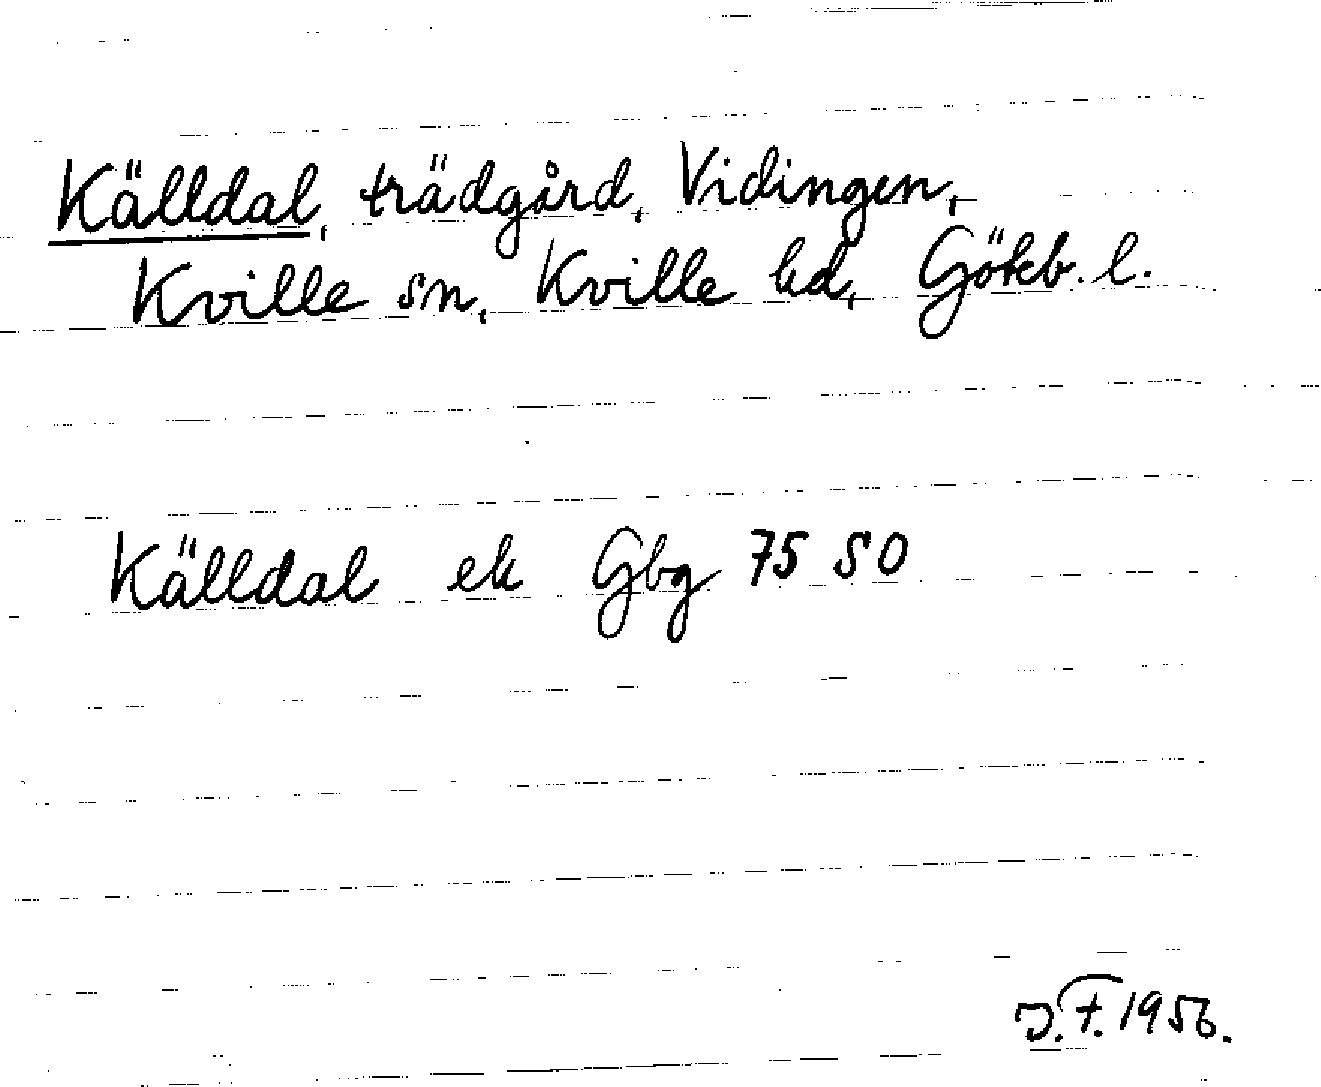 Källdal, trädgård, Vidingen,
Kville sn, Kville hd, Göteb. l.
Källdal ek Gbg 75 SO
J.F. 1956.